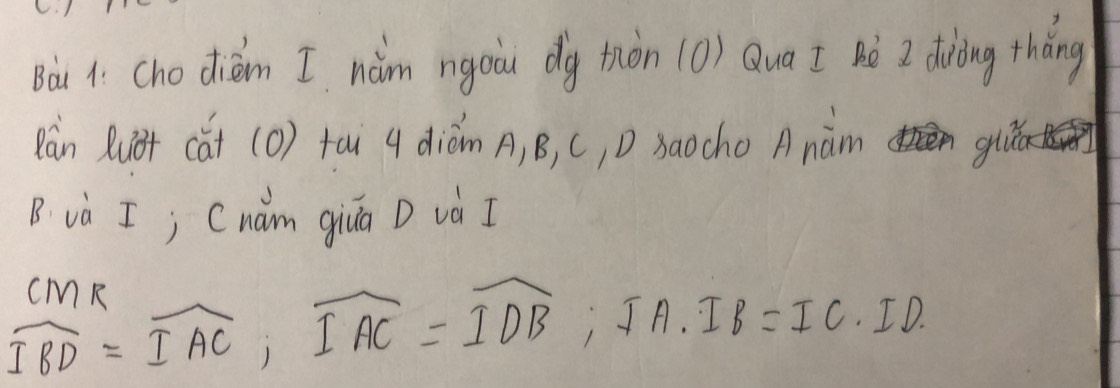 Bài 1: Cho điểm I nằm ngoài đg tròn (O) Qua I kẻ 2 đường thẳng
lần lượt cắt (O) tại 4 điểm A, B, C, D sao cho A nằm giữa
B và I ; C nằm giữa D và I
CMR
IBD = IAC ; IAC = IDB ; IA. IB = IC. ID.